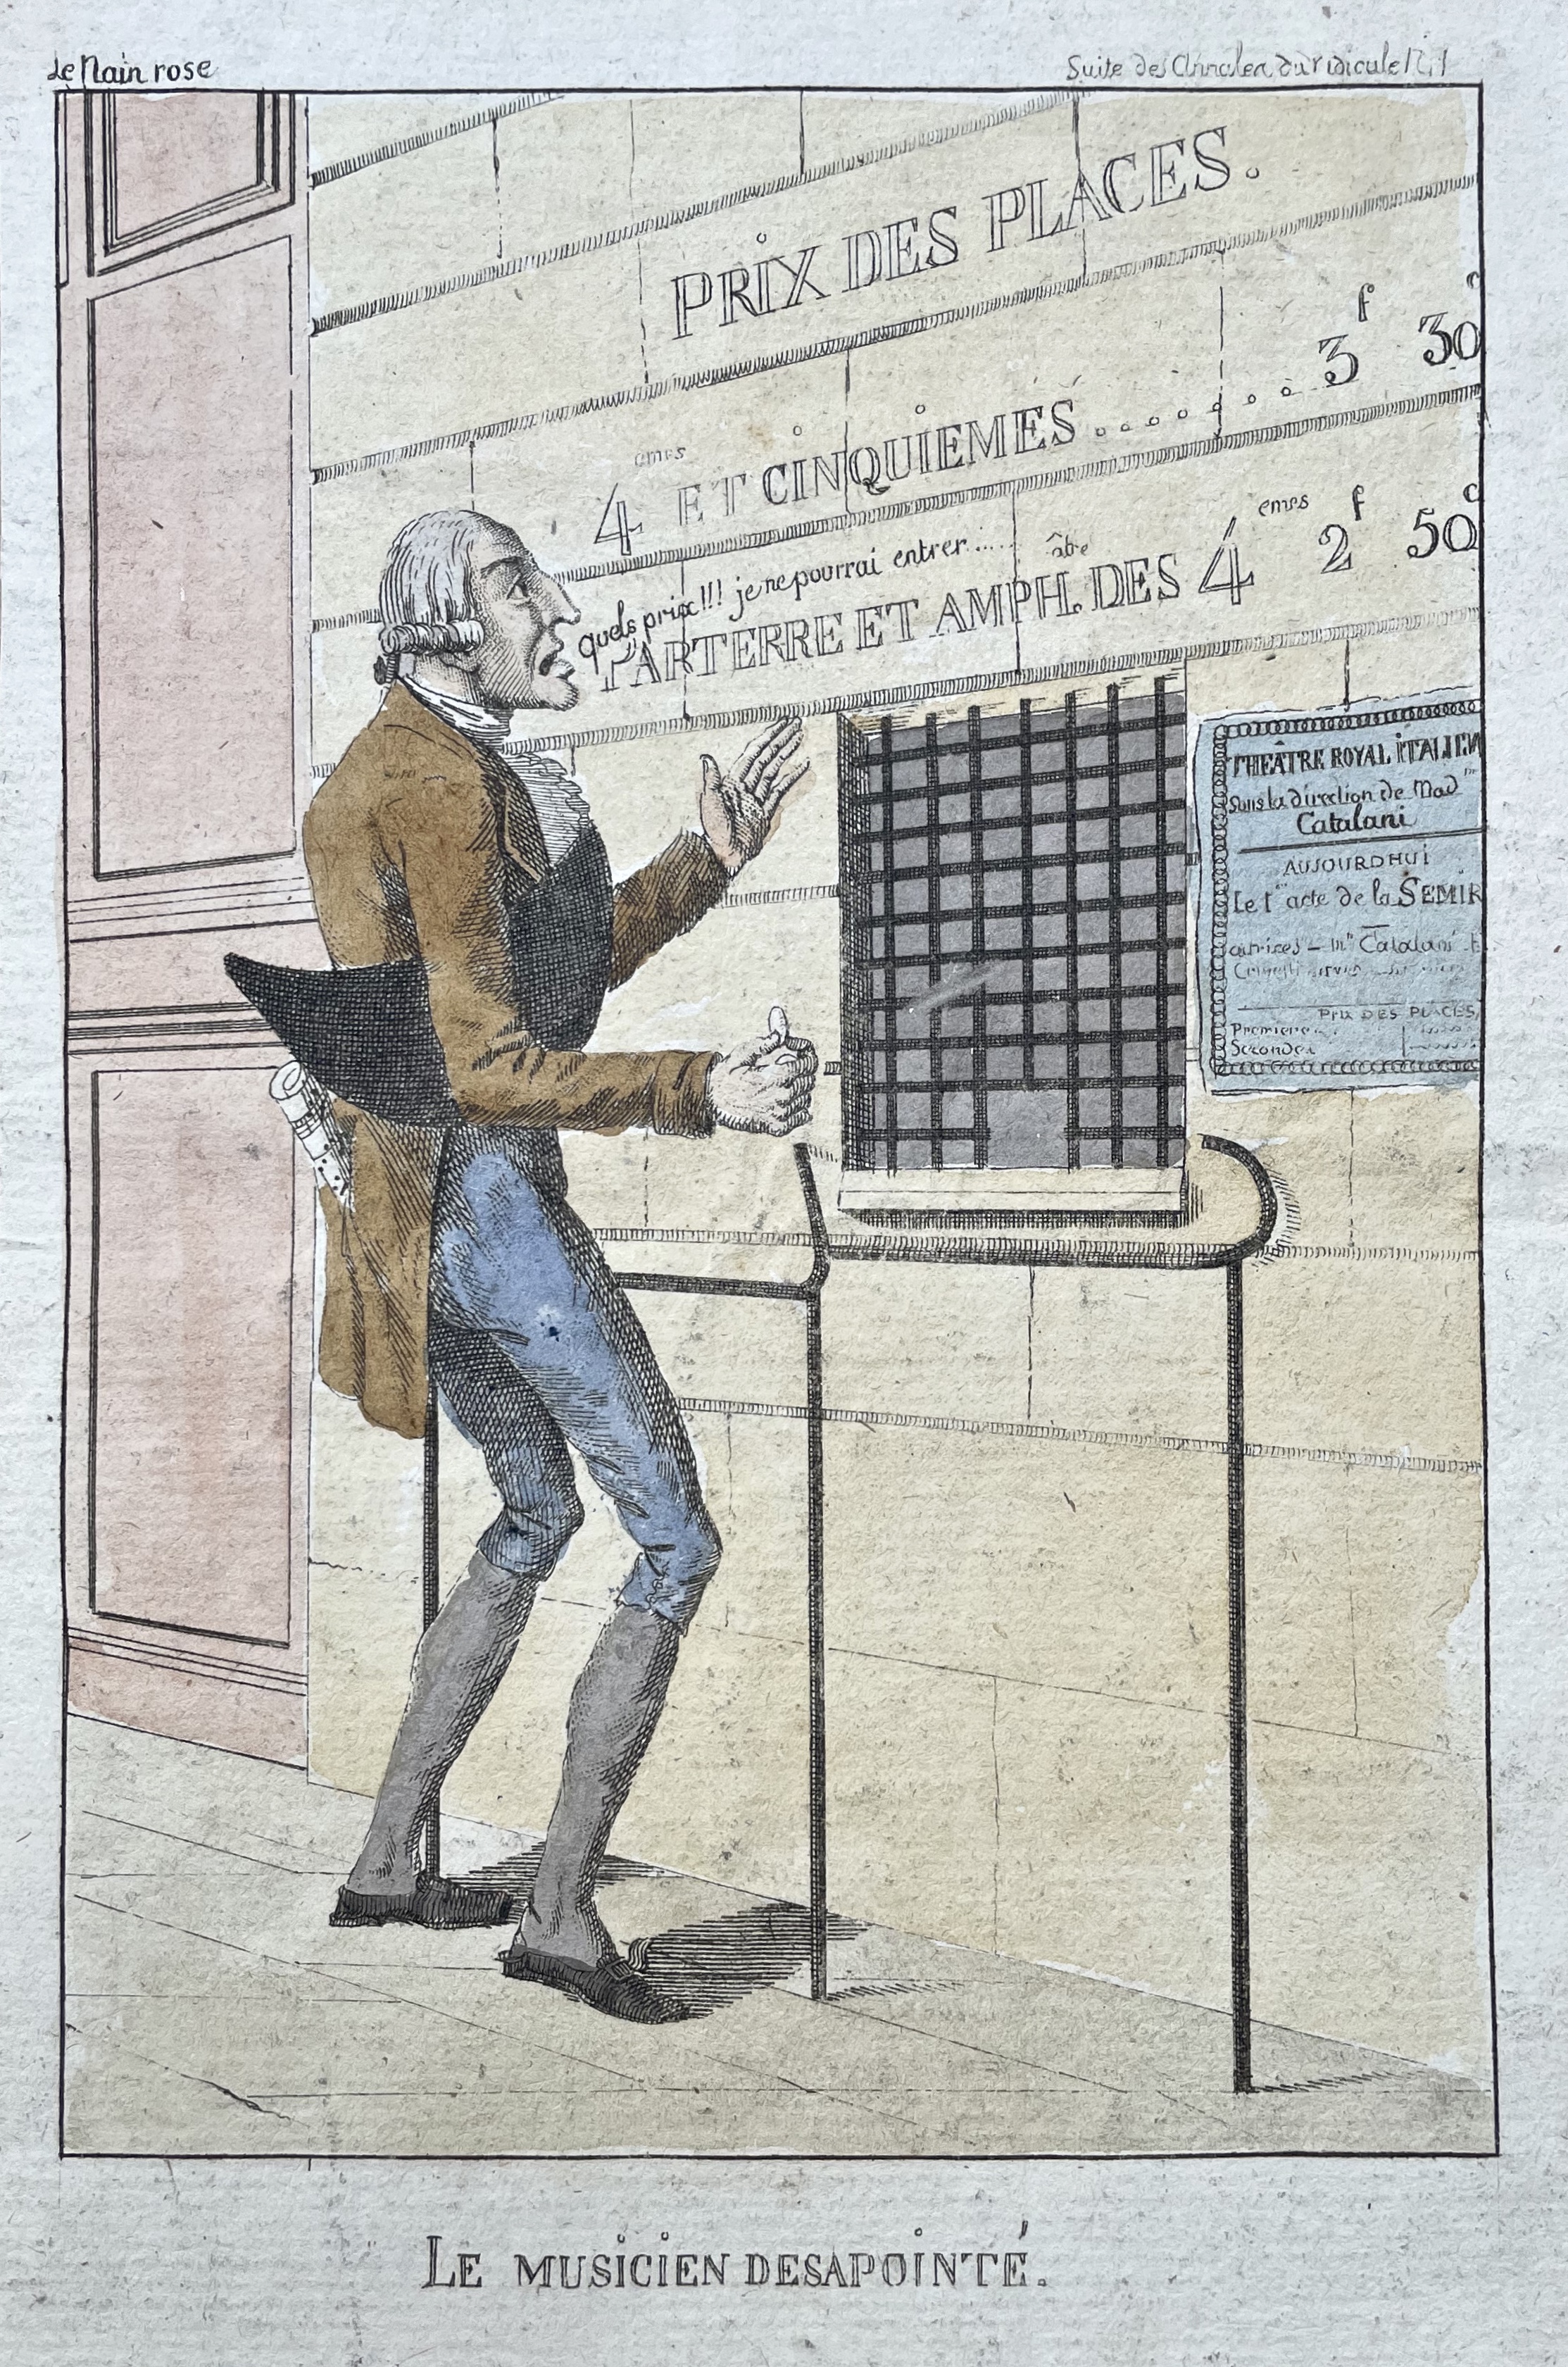 Le Nain rose
Suite des Annales du ridicule
PRIX DES PLACES.
4 emes ET CINQUIEMES....... 3 f 30 c
quels prix!!! je ne pourrai entrer.....
PARTERRE ET AMPH. âtre DES 4 emes 2 f 50 c
THEÂTRE ROYAL ITALIEN
Sous la direction de Mad me
Catalani
AUJOURDHUI
Le 1 er acte de la SEMIR
actrices - M e Catalani
PRIX DES PLACES,
Premiere..
Secondes
LE MUSICIEN DESAPOINTÉ.